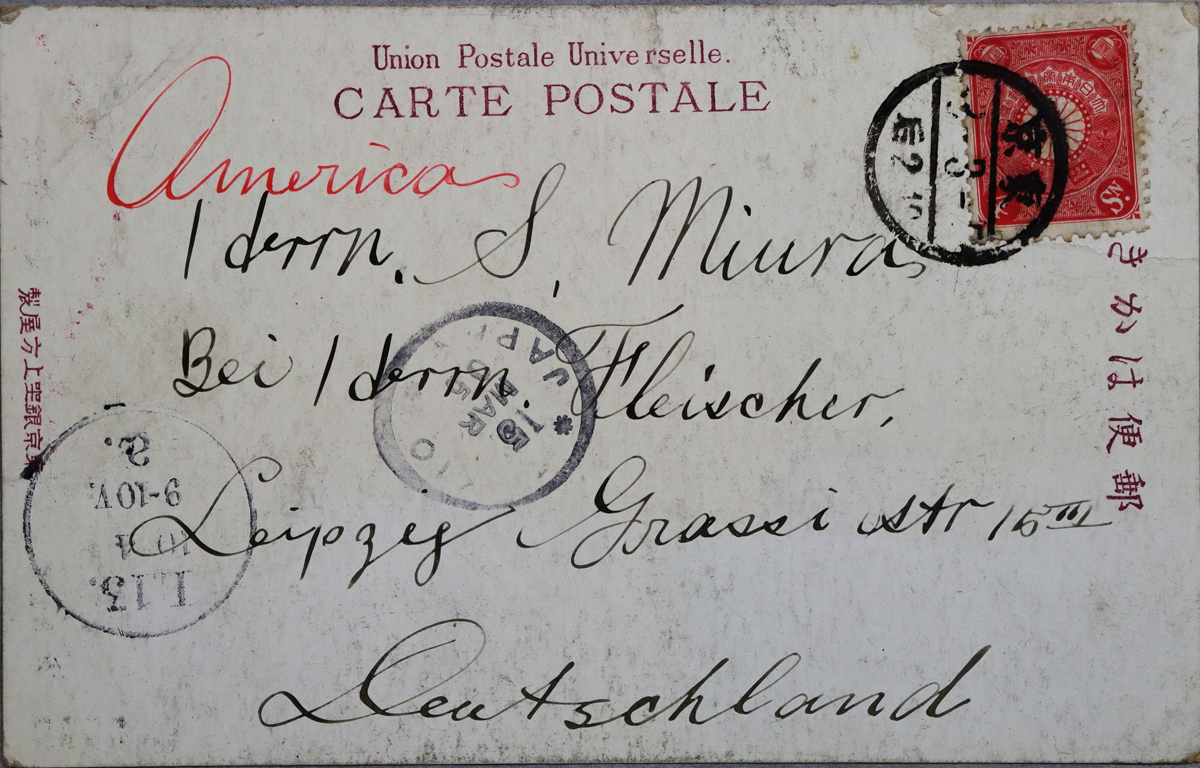 Union Postale Universelle.
CARTE POSTALE
America
Herrn. S. Miura
Bei Herrn. Fleischer,
Leipzig Grassi str 15 III
Deutschland
きかは便郵
製屋方上座銀京東
東京
3
后2
大日本帝國
Sn.
JAPAN
15
MAR
05
L.13.
10 4
9-10V.
a.